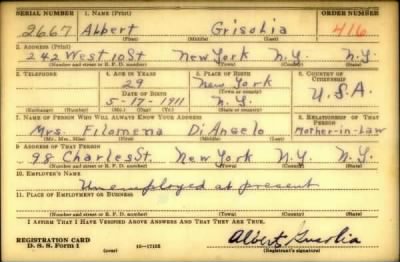 SERIAL NUMBER 1. NAME (Print) ORDER NUMBER
2667 Albert Grisolia 416
(First) (Middle) (Last)
2. ADDRESS (Print)
242 West 10 St New York N.Y. N.Y.
(Number and street or R. F. D. number) (Town) (County) (State)
3. TELEPHONE 4. AGE IN YEARS 5. PLACE OF BIRTH 6. COUNTRY OF CITIZENSHIP
29 New York
DATE OF BIRTH (Town or county) U.S.A.
5-17-1911 N.Y.
(Exchange) (Number) (Mo.) (Day) (Yr.) (State or country)
7. NAME OF PERSON WHO WILL ALWAYS KNOW YOUR ADDRESS 8. RELATIONSHIP OF THAT PERSON
Mrs. Filomena DiAngelo Mother-in-Law
(Mr., Mrs., Miss) (First) (Middle) (Last)
9. ADDRESS OF THAT PERSON
98 Charles St. New York N.Y. N.Y.
(Number and street or R. F. D. number) (Town) (County) (State)
10. EMPLOYER'S NAME
Unemployed at present
11. PLACE OF EMPLOYMENT OR BUSINESS
(Number and street or R. F. D. number) (Town) (County) (State)
I AFFIRM THAT I HAVE VERIFIED ABOVE ANSWERS AND THAT THEY ARE TRUE.
REGISTRATION CARD
D. S. S. Form 1 (over) 16-17105 Albert Grisolia
(Registrant's signature)